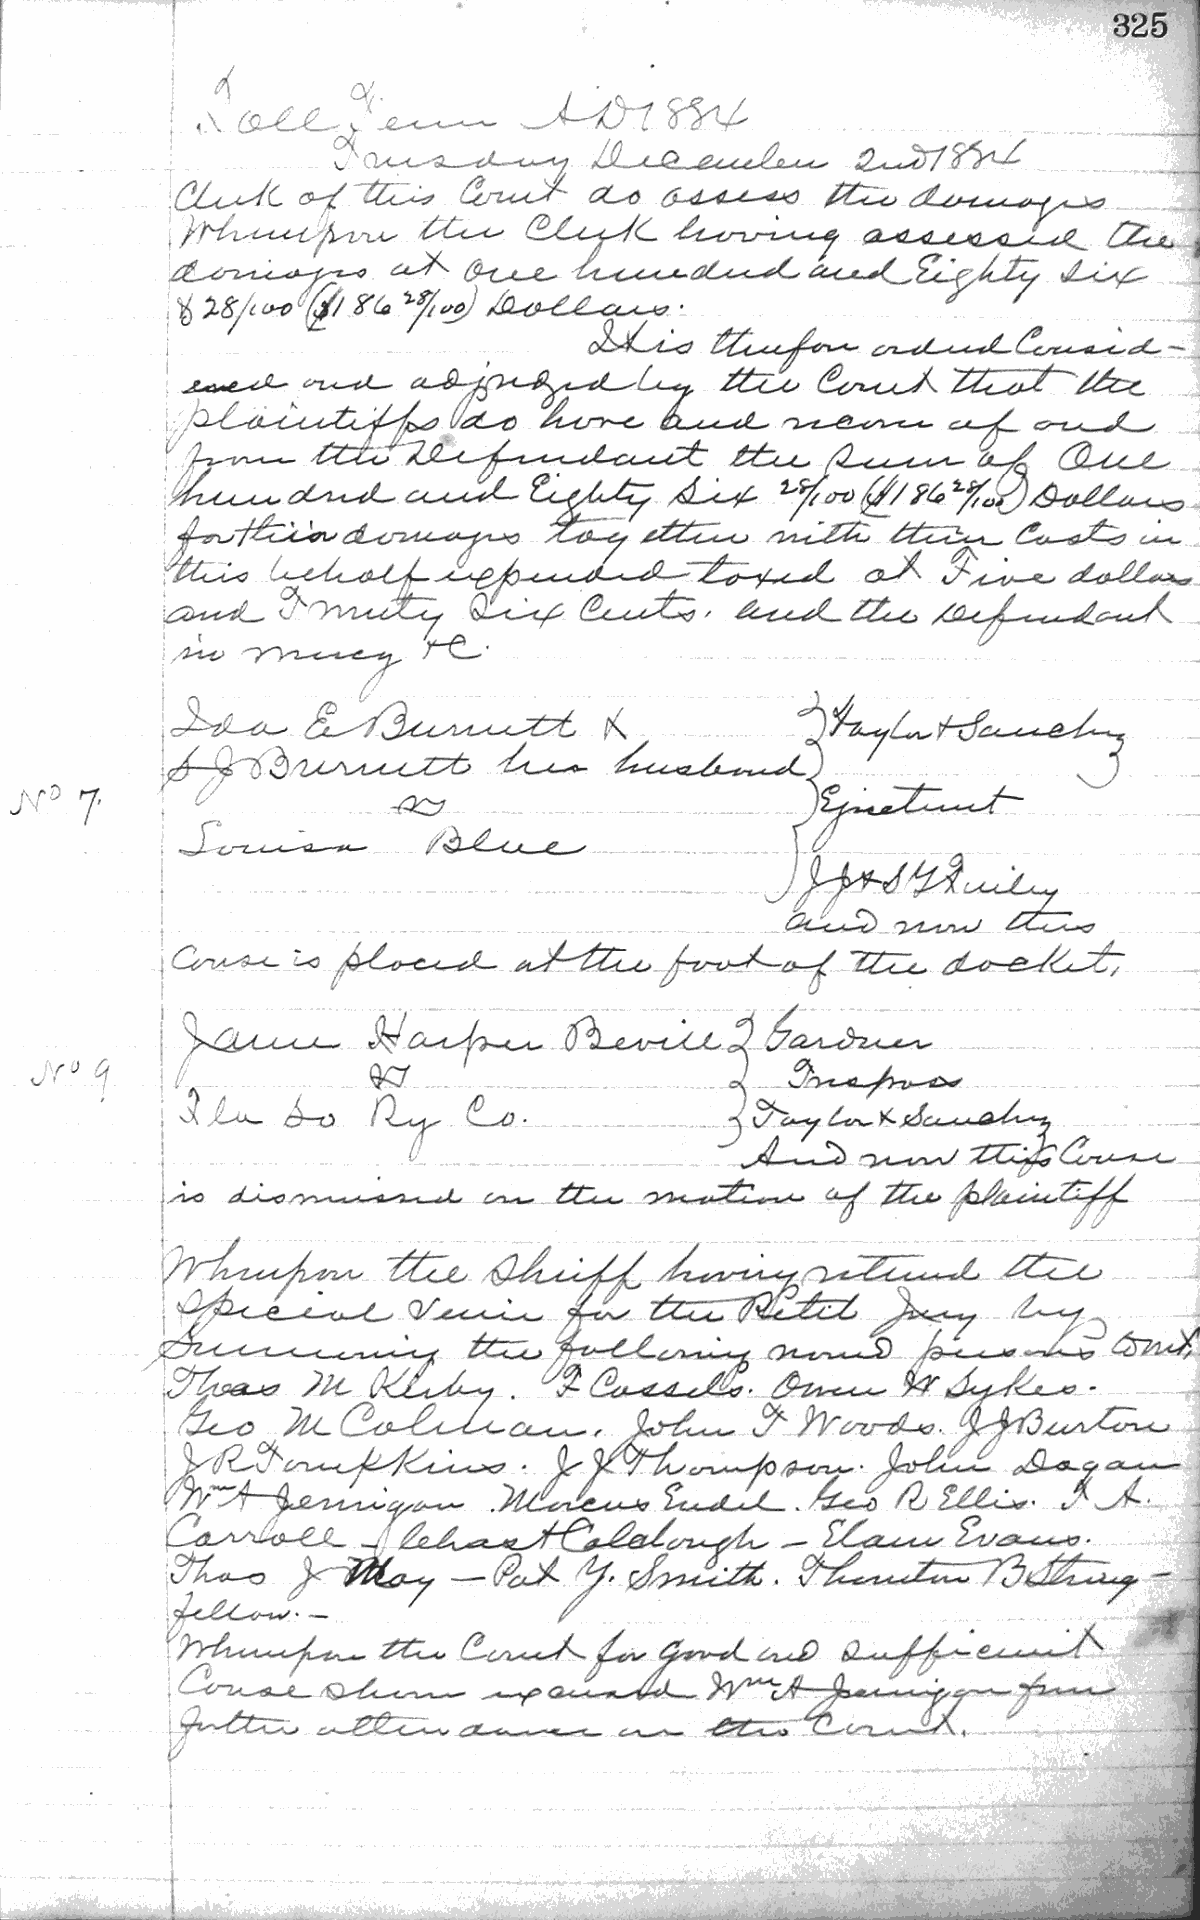 325
Fall Term AD 1884
Tuesday December 2nd 1884
Clerk of this Court do assess the damages
Whereupon the Clerk having assessed the
damages at One hundred and Eighty Six
& 28/100 ($186 28/100) Dollars.
It is therefore ordered Consid-
ered and adjudged by the Court that the
plaintiffs do have and recover of and
from the Defendant the sum of One
hundred and Eighty Six 28/100 ($186 28/100) Dollars
for their damages together with their Costs in
this behalf expended taxed at Five dollars
and Twenty Six Cents. and the Defendant
in mercy &C.
Ida E Burnett & } Taylor & Sanchez
S J Burnett her husband
No 7. vs } Ejectment
Louisa Blue
J J & S Y Finley
and now this
Cause is placed at the foot of the docket.
Jane Harper Bevill } Gardner
No 9 vs } Trespass
Fla So Ry Co. } Taylor & Sanchez
And now this Cause
is dismissed on the motion of the plaintiff
Whereupon the Sheriff having returned the
Special Venire for the Petit Jury by
Summoning the following named persons towit,
Thos M Kirby. F Cassels. Owen W Sykes.
Geo M Colman. John F Woods. J J Burton
J R Tompkins. J J Thompson. John Dogan
Wm A Jernigan. Marcus Endel. Geo R Ellis. T A.
Carroll - Chas Colclough - Elam Evans.
Thos J May - Pat Y. Smith. Thornton B String-
fellow. -
Whereupon the Court for good and sufficient
Cause shown excused Wm A Jernigan from
futher attendance on the Court.